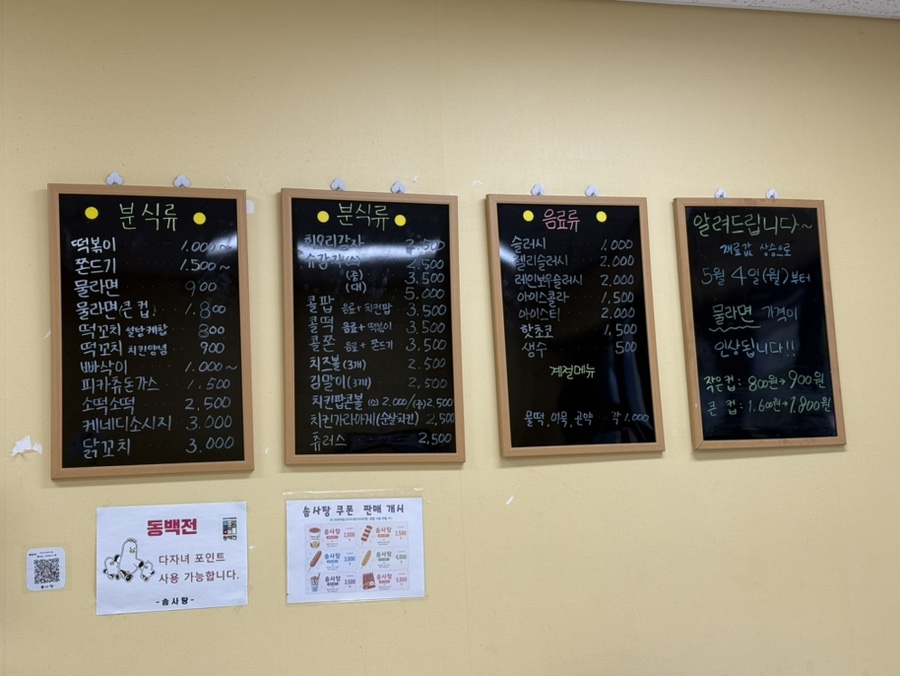 분식류
떡볶이 1.000~
쫀드기 1.500~
물라면 900
물라면(큰컵) 1.800
떡꼬치 설탕케찹 800
떡꼬치 치킨양념 900
빠삭이 1.000~
피카츄돈가스 1.500
소떡소떡 2,500
케네디소시지 3.000
닭꼬치 3.000
분식류
회오리감자 3,500
슈감자(소) 2,500
(중) 3,500
(대) 5,000
콜팝 음료+치킨팝 3,500
콜떡 음료+떡볶이 3,500
콜쫀 음료+쫀드기 3,500
치즈볼(3개) 2,500
김말이(3개) 2,500
치킨팝콘볼 (소) 2,000/(중)2,500
치킨가라아게(순살치킨) 2,500
츄러스 2,500
음료류
슬러시 1,000
젤리슬러시 2,000
레인보우슬러시 2,000
아이스콜라 1,500
아이스티 2,000
핫초코 1,500
생수 500
계절메뉴
물떡, 어묵, 곤약 각 1,000
알려드립니다~
재료값 상승으로
5월 4일(월)부터
물라면 가격이
인상됩니다!!
작은컵: 800원→900원
큰 컵: 1.600원→1,800원
동백전
동백전
다자녀 포인트
사용 가능합니다.
-솜사탕-
솜사탕 쿠폰 판매 개시
솜사탕 2,000
솜사탕 2,500
솜사탕 3,000
솜사탕 4,000
솜사탕 3,500
솜사탕 5,000
솜사탕